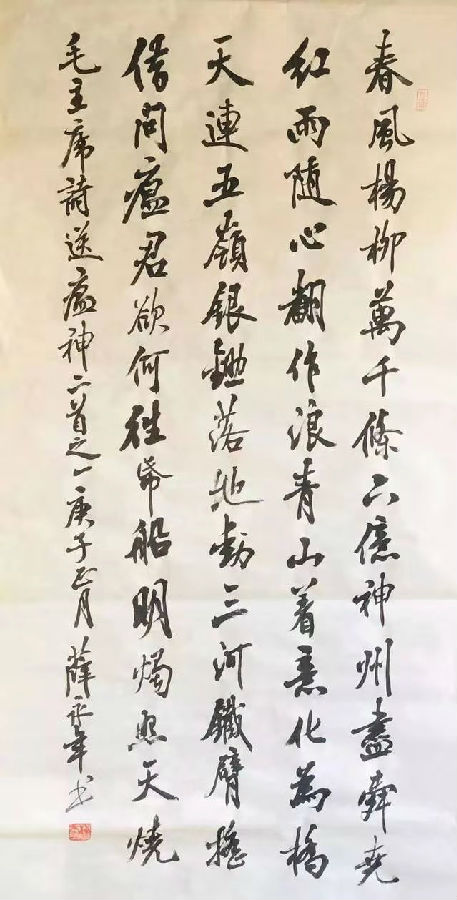 春風楊柳萬千條六億神州盡舜堯
紅雨隨心翻作浪青山着意化為橋
天連五嶺銀鋤落地動三河鐵臂搖
借問瘟君欲何往帋船明燭照天燒
毛主席詩送瘟神二首之一庚子正月薛永年书